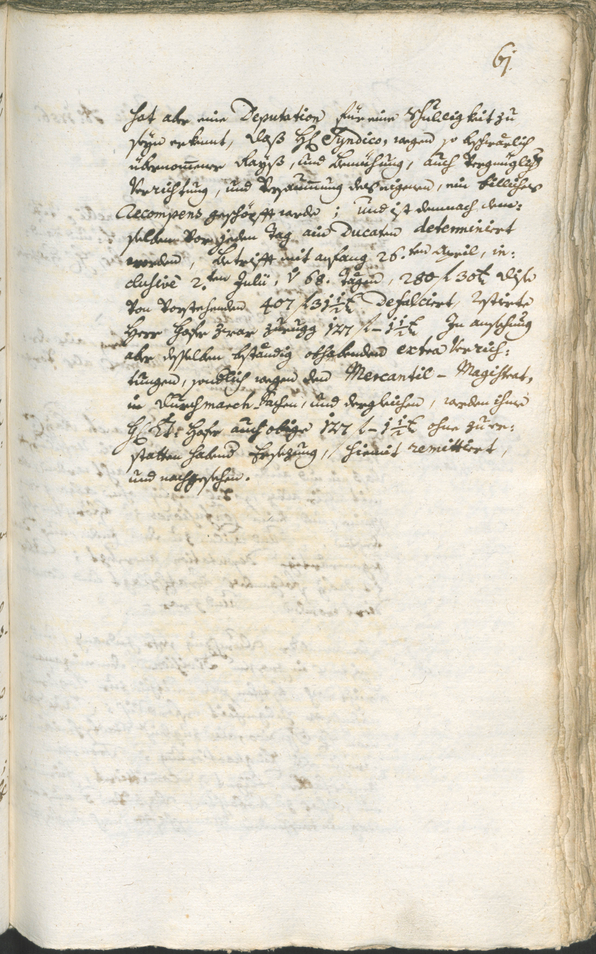 61.
hat aber eine Deputation für eine Schulligkeit zu
seyn erkennt, daß H. Syndico, wegen so beschwärlich
übernommener Rayß, und Bemühung, auch Vergnüglicher
Verrichtung, und Versaumung des eigenen, ein billiches
Recompens geschöpfft werde; und ist demnach dem-
selben Vor jeden Tag ain Ducaten determiniert
worden, Betrifft mit anfang 26.ten April, in-
clusivè 2.ten Julii, 68. Tägen, 280 f 30 x dise
Von Vorstehenden 407 f 31½ x defalciert, restierte
Herr Hofer zwar zurugg 127 f – 1½ x In ansehung
aber desselben beständig obhabenden extra Verrich-
tungen, sondlich wegen den Mercantil-Magistrat,
in Durchmarch Sachen, und dergleichen, werden ihme
H. Hofer auch obige 127 f – 1½ x ohne zu re-
statten habend Ersezung, hiemit remittiert,
und nachgesehen.